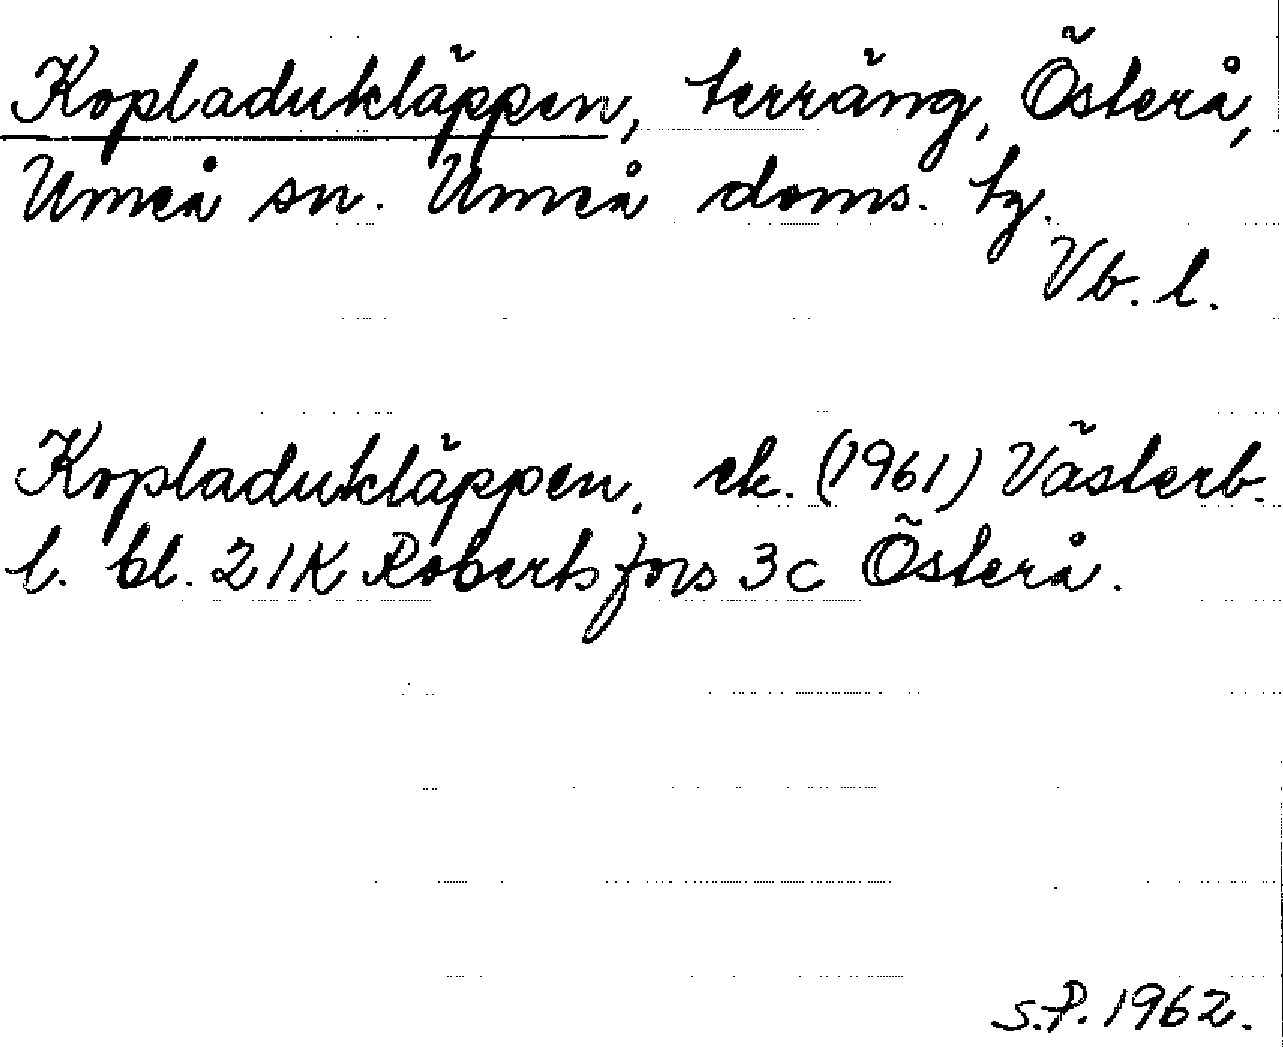 Kopladukläppen, terräng, Österå,
Umeå sn. Umeå doms. tg.
Vb. l.
Kopladukläppen. ek. (1961) Västerb.
l. bl. 21K Robertsfors 3c Österå.
S.P. 1962.